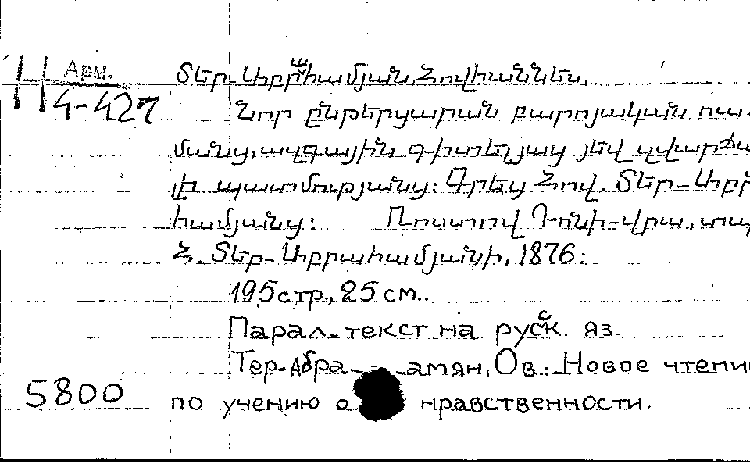 Н Арм.
4-427
Տեր-Աբրահամյան, Հովհաննես.
Նոր ընթերցարան բարոյական ուս
մանց, ազգային գիտելյաց յեվ զվարճա
լի պատմությանց: Գրեց Հով. Տեր-Աբր
համյանց: Ռոստով Դոնի-վրա, տպ
Հ. Տեր-Աբրահամյանի, 1876.
195 стр., 25 см.
Парал. текст на русск. яз
Тер-Абра амян, Ов.: Новое чтени
по учению о нравственности.
5800